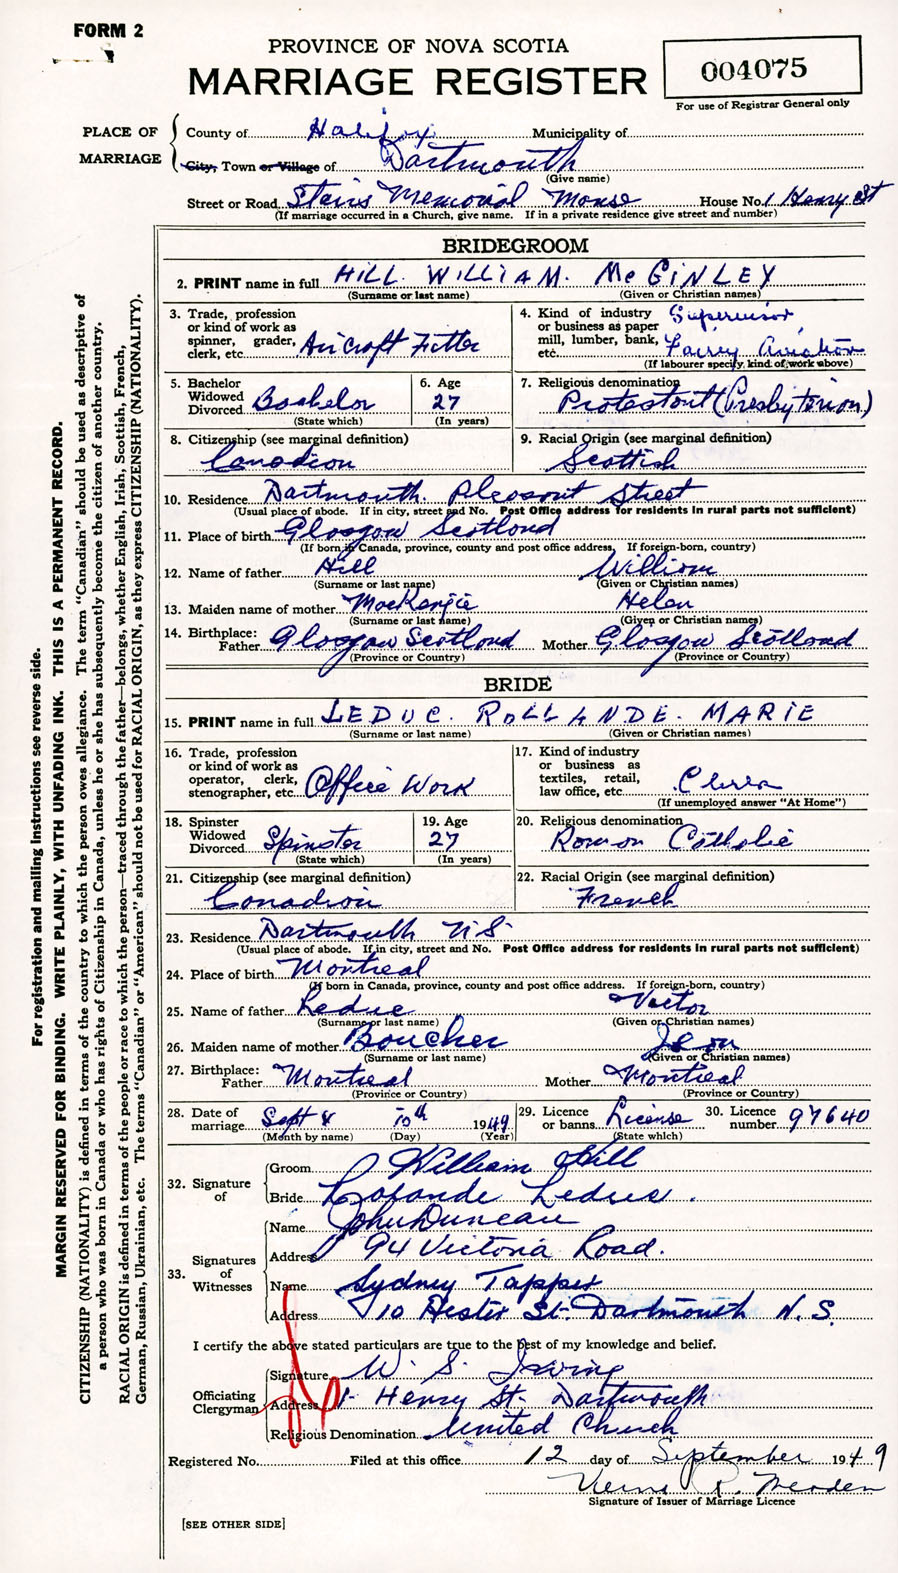 FORM 2
PROVINCE OF NOVA SCOTIA
MARRIAGE REGISTER
004075
For use of Registrar General only
PLACE OF MARRIAGE
County of Halifax Municipality of
City, Town or Village of Dartmouth
(Give name)
Street or Road Stairs Memorial Manse House No. 1 Henry St
(If marriage occurred in a Church, give name. If in a private residence give street and number)
BRIDEGROOM
2. PRINT name in full HILL WILLIAM. McGINLEY
(Surname or last name) (Given or Christian names)
3. Trade, profession or kind of work as spinner, grader, clerk, etc. Aircraft Fitter
4. Kind of industry or business as paper mill, lumber, bank, etc. Supervisor, Fairey Aviation
(If labourer specify kind of work above)
5. Bachelor Widowed Divorced Bachelor
(State which)
6. Age 27
(In years)
7. Religious denomination Protestant (Presbyterian)
8. Citizenship (see marginal definition) Canadian
9. Racial Origin (see marginal definition) Scottish
10. Residence Dartmouth. Pleasant Street
(Usual place of abode. If in city, street and No. Post Office address for residents in rural parts not sufficient)
11. Place of birth Glasgow Scotland
(If born in Canada, province, county and post office address. If foreign-born, country)
12. Name of father Hill William
(Surname or last name) (Given or Christian names)
13. Maiden name of mother MacKenzie Helen
(Surname or last name) (Given or Christian names)
14. Birthplace: Father Glasgow Scotland Mother Glasgow Scotland
(Province or Country) (Province or Country)
BRIDE
15. PRINT name in full LEDUC. ROLLANDE. MARIE
(Surname or last name) (Given or Christian names)
16. Trade, profession or kind of work as operator, clerk, stenographer, etc. Office Work
17. Kind of industry or business as textiles, retail, law office, etc.
(If unemployed answer "At Home")
18. Spinster Widowed Divorced Spinster
(State which)
19. Age 27
(In years)
20. Religious denomination Roman Catholic
21. Citizenship (see marginal definition) Canadian
22. Racial Origin (see marginal definition) French
23. Residence Dartmouth N.S.
(Usual place of abode. If in city, street and No. Post Office address for residents in rural parts not sufficient)
24. Place of birth Montreal
(If born in Canada, province, county and post office address. If foreign-born, country)
25. Name of father Leduc Victor
(Surname or last name) (Given or Christian names)
26. Maiden name of mother Boucher Jean
(Surname or last name) (Given or Christian names)
27. Birthplace: Father Montreal Mother Montreal
(Province or Country) (Province or Country)
28. Date of marriage Sept 10th 1949
(Month by name) (Day) (Year)
29. Licence or banns License
(State which)
30. Licence number 97640
32. Signature of
Groom William Hill
Bride Rolande Leduc.
33. Signatures of Witnesses
Name John Duncan
Address 94 Victoria Road.
Name Sydney Tapper
Address 10 Hester St. Dartmouth N.S.
I certify the above stated particulars are true to the best of my knowledge and belief.
Officiating Clergyman
Signature W. S. Irving
Address 1 Henry St. Dartmouth
Religious Denomination United Church
Registered No. Filed at this office 12 day of September 1949
Signature of Issuer of Marriage Licence
[SEE OTHER SIDE]
For registration and mailing instructions see reverse side.
MARGIN RESERVED FOR BINDING. WRITE PLAINLY, WITH UNFADING INK. THIS IS A PERMANENT RECORD.
CITIZENSHIP (NATIONALITY) is defined in terms of the country to which the person owes allegiance. The term "Canadian" should be used as descriptive of
a person who was born in Canada or who has rights of Citizenship in Canada, unless he or she has subsequently become the citizen of another country.
RACIAL ORIGIN is defined in terms of the people or race to which the person—traced through the father—belongs, whether English, Irish, Scottish, French,
German, Russian, Ukrainian, etc. The terms "Canadian" or "American" should not be used for RACIAL ORIGIN, as they express CITIZENSHIP (NATIONALITY).